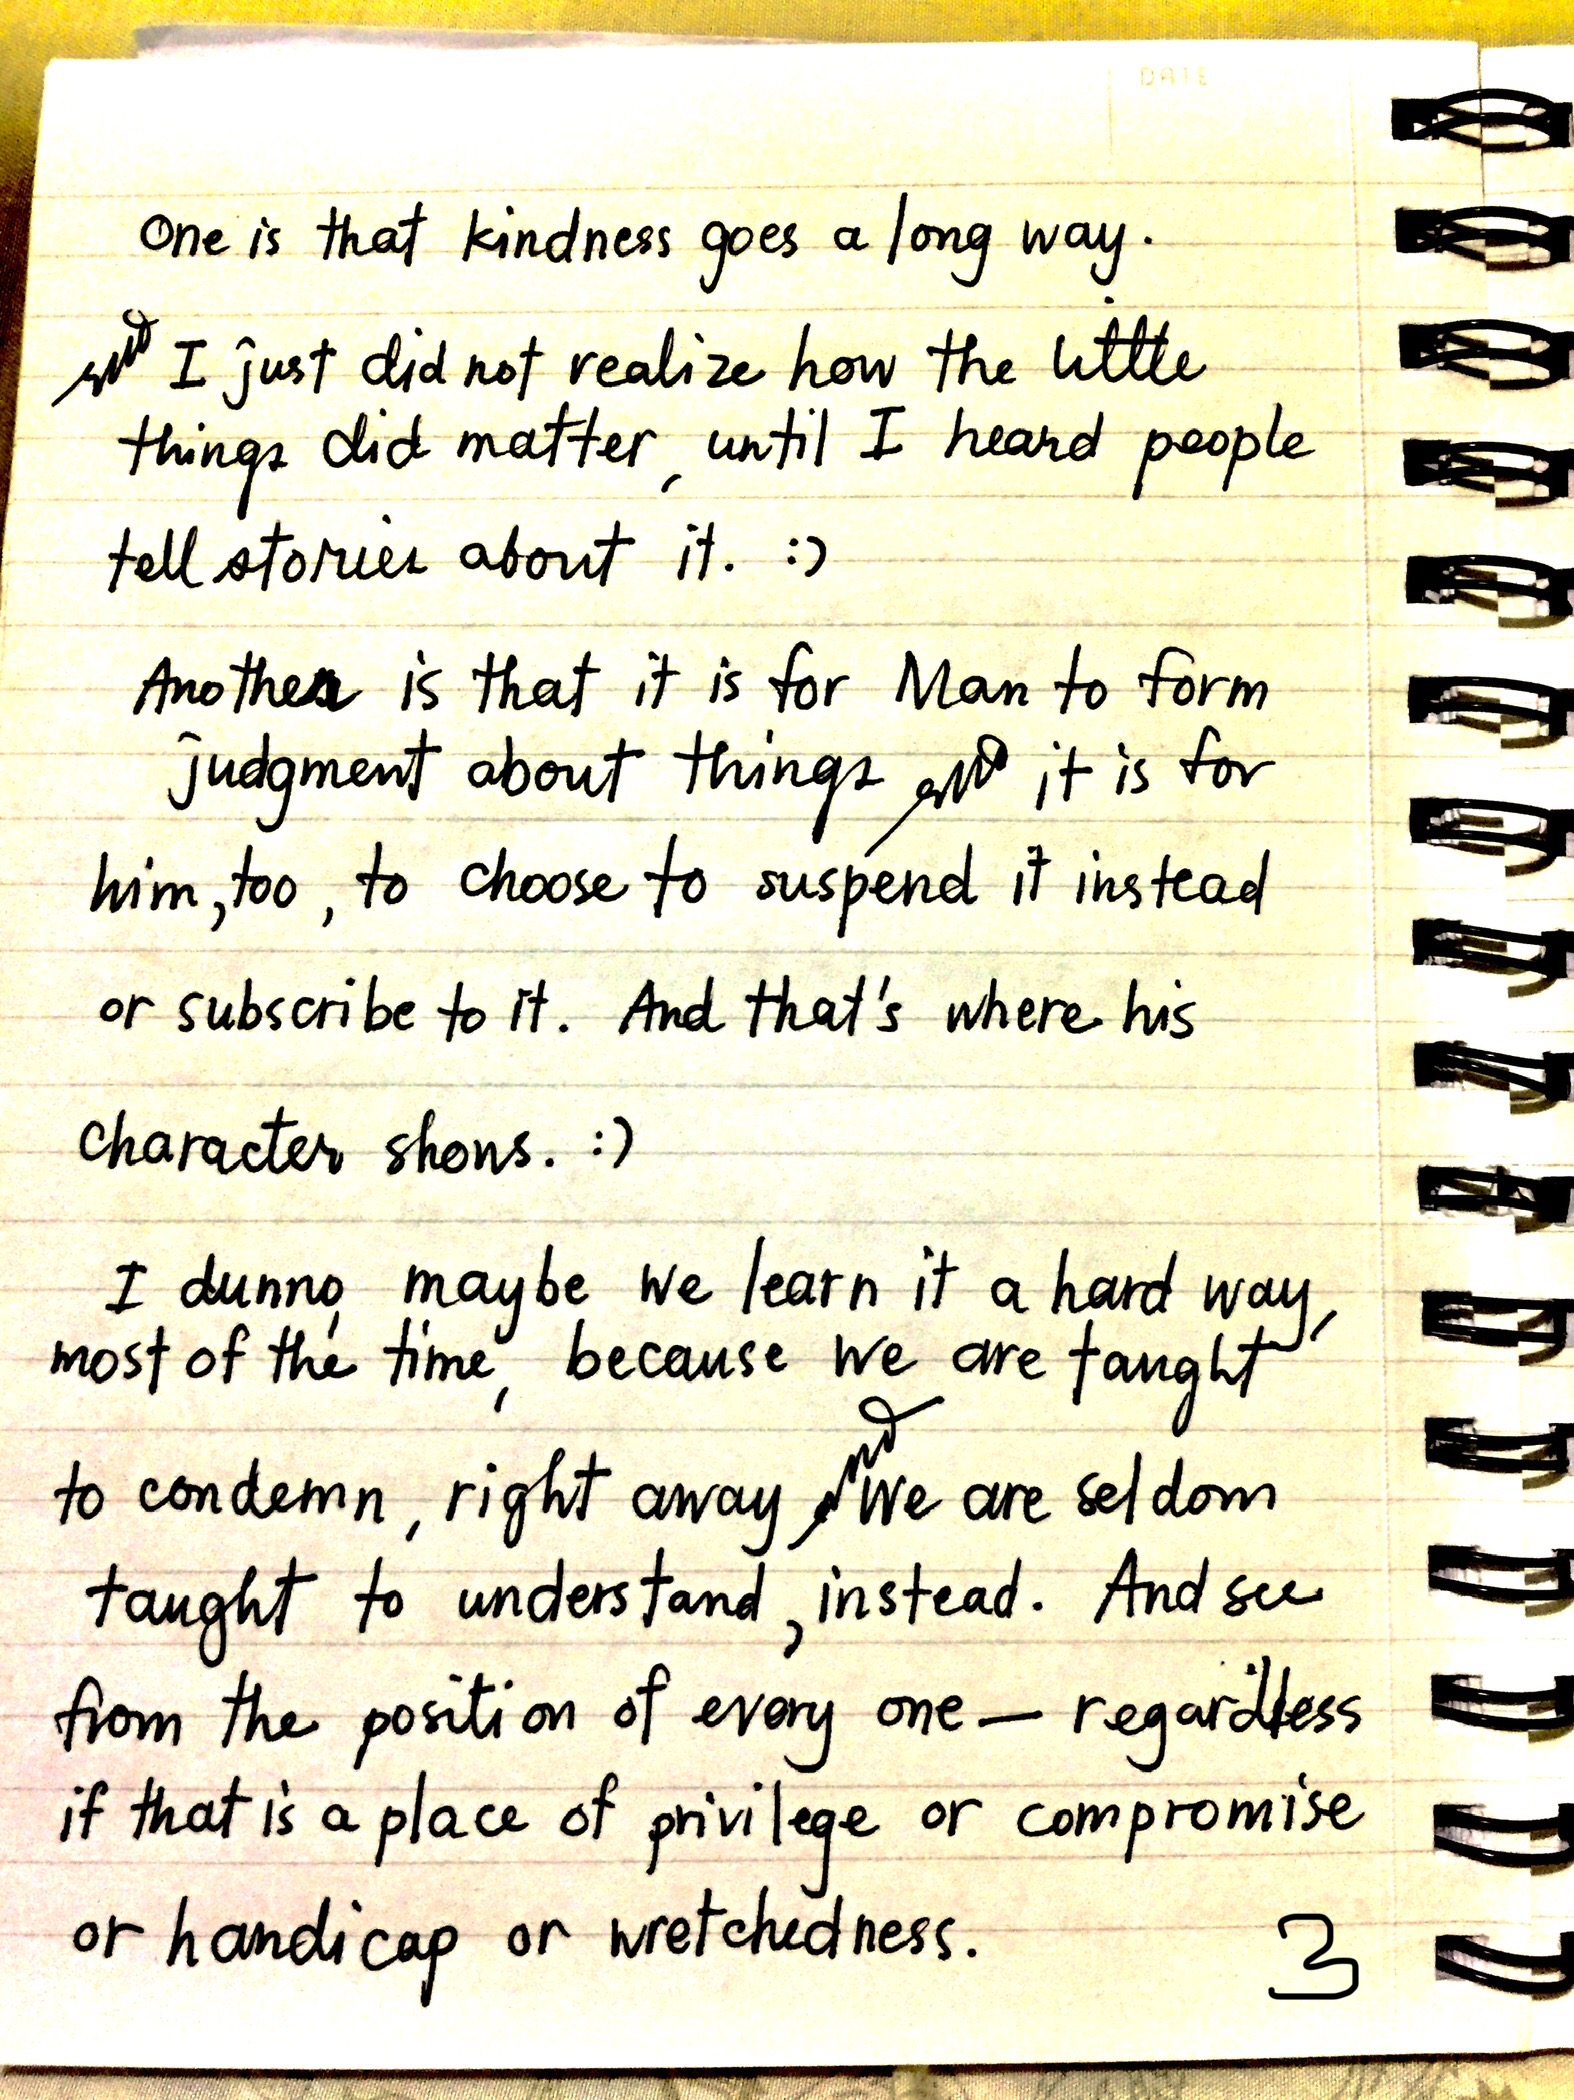 DATE
One is that kindness goes a long way.
and I just did not realize how the little
things did matter, until I heard people
tell stories about it. :)
Another is that it is for Man to form
judgment about things and it is for
him, too, to choose to suspend it instead
or subscribe to it. And that's where his
character shows. :)
I dunno, maybe we learn it a hard way,
most of the time, because we are taught
to condemn, right away and we are seldom
taught to understand, instead. And see
from the position of every one — regardless
if that is a place of privilege or compromise
or handicap or wretchedness.
3